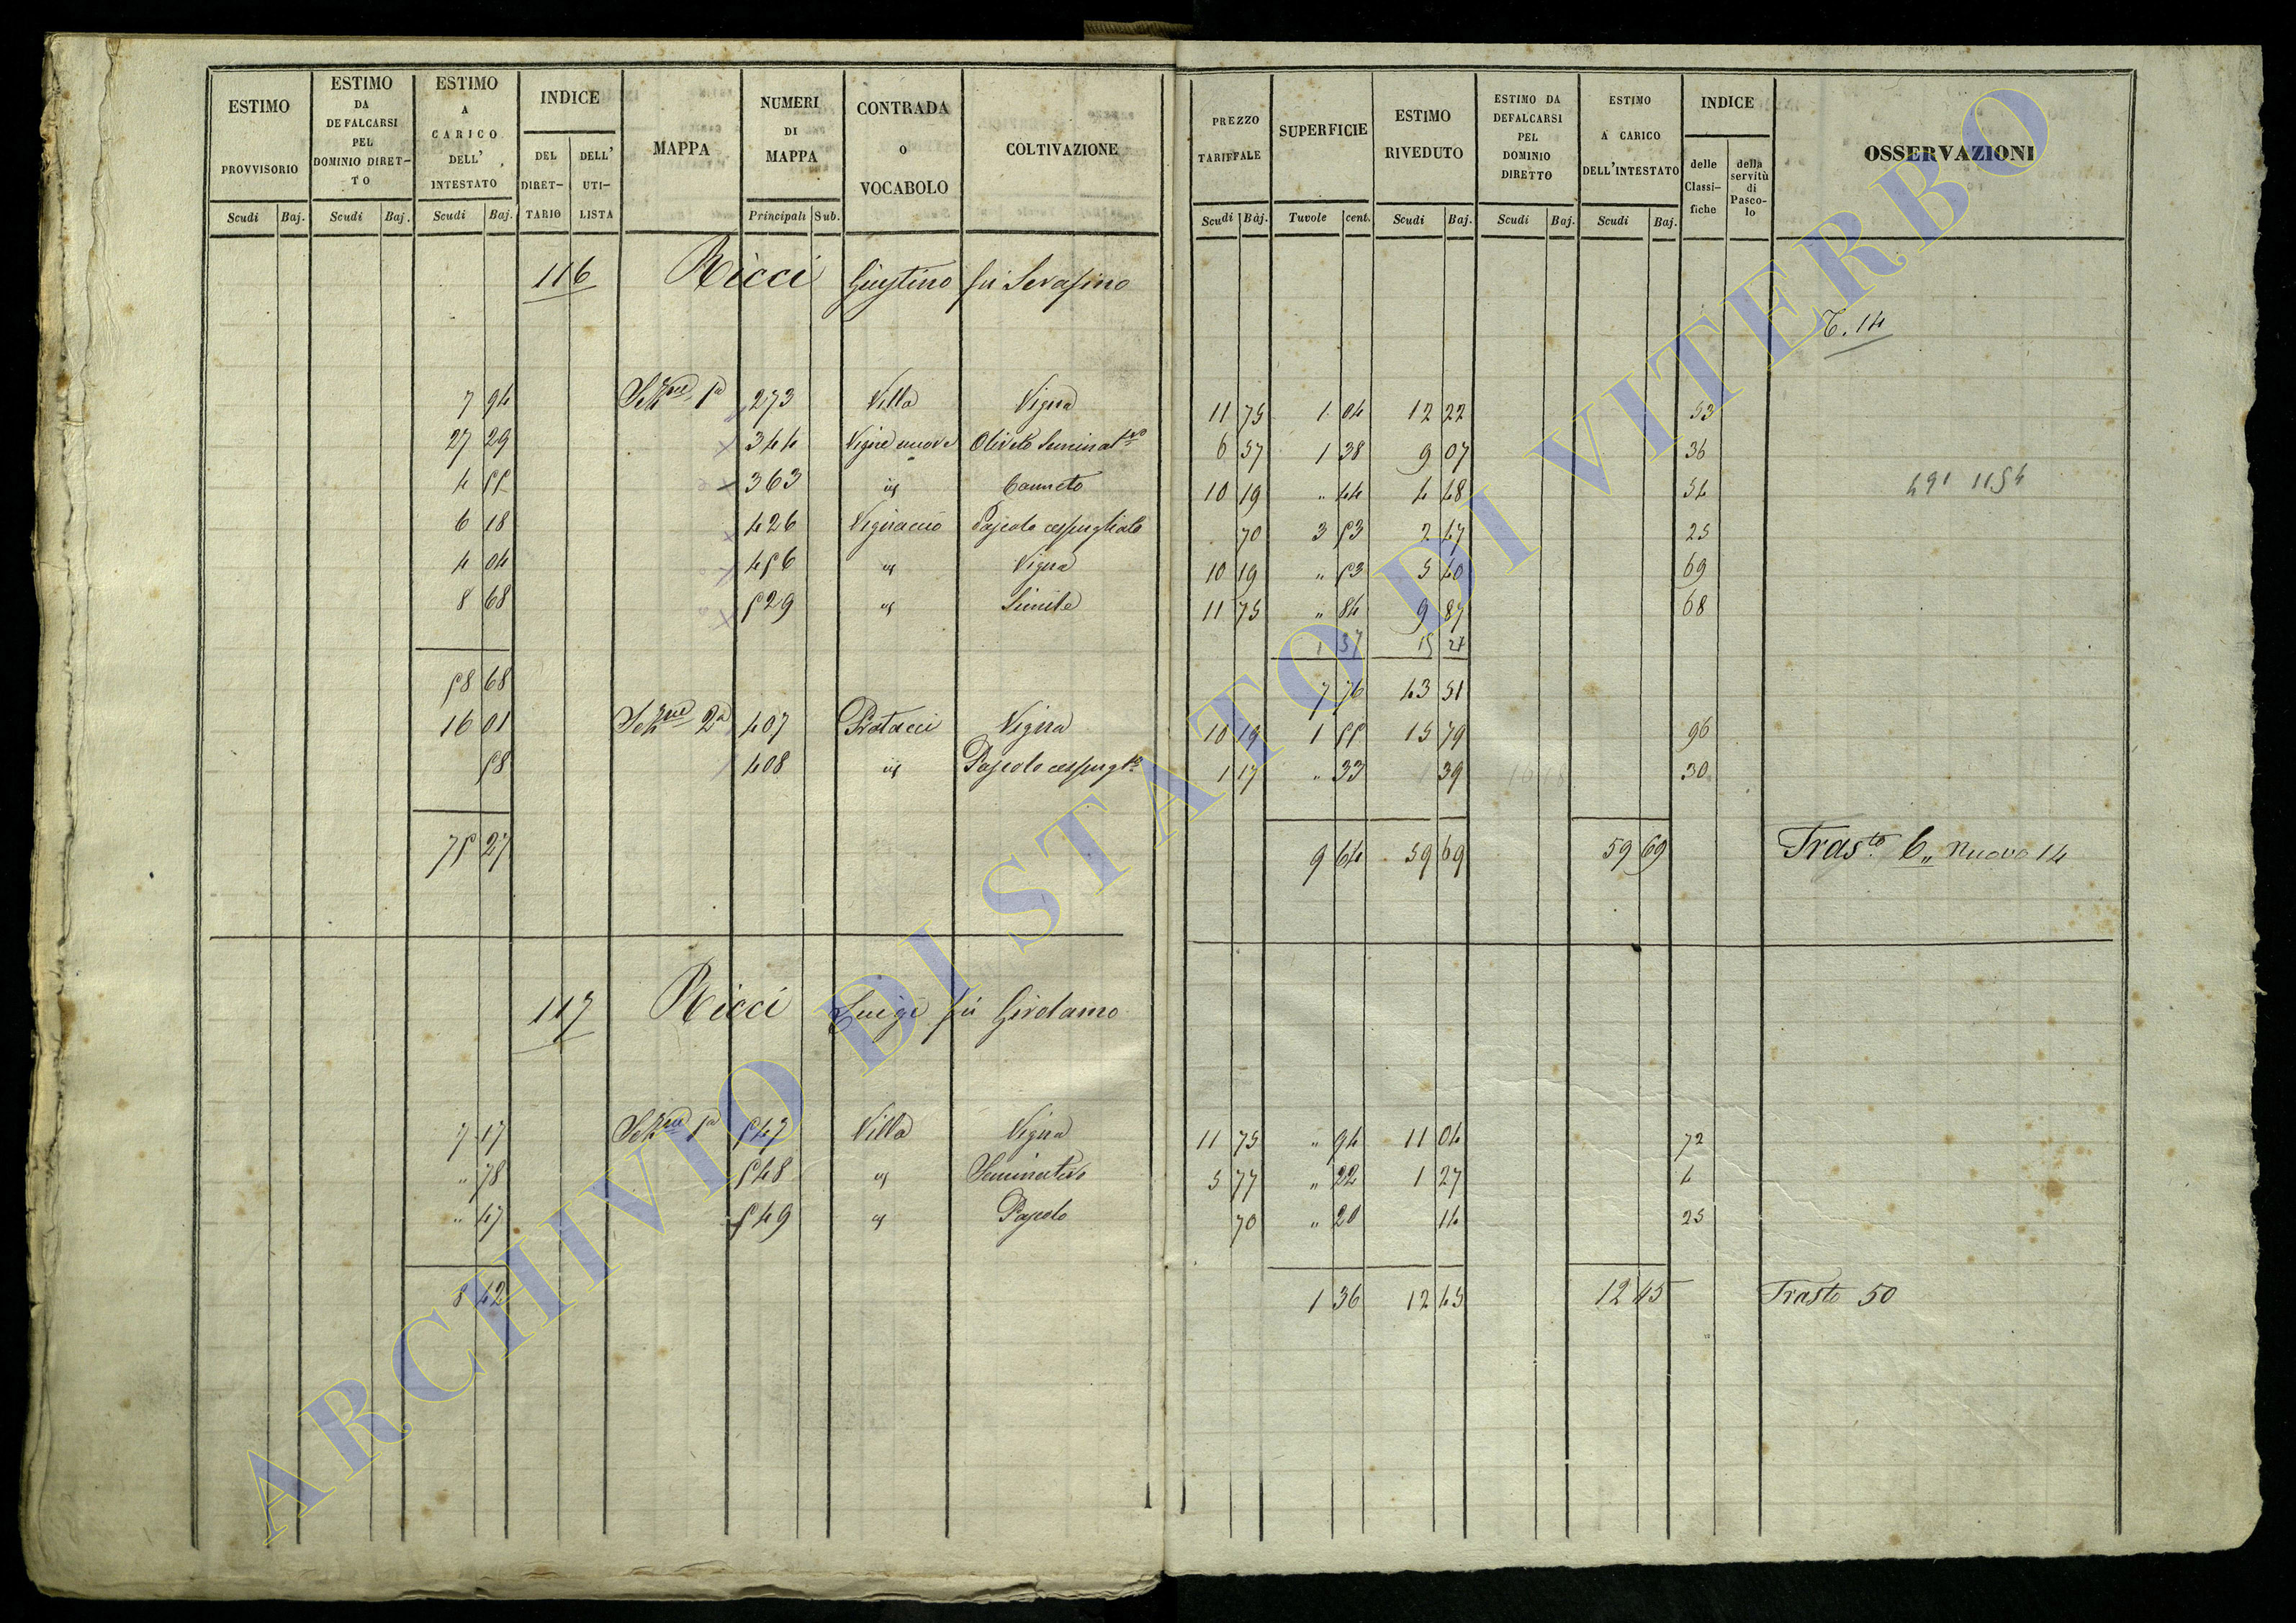 ESTIMO PROVVISORIO Scudi Baj.
ESTIMO DA DEFALCARSI PEL DOMINIO DIRET-TO Scudi Baj.
ESTIMO A CARICO DELL' INTESTATO Scudi Baj.
INDICE DEL DIRET-TARIO DELL' UTI-LISTA
MAPPA
NUMERI DI MAPPA Principali Sub.
CONTRADA O VOCABOLO
COLTIVAZIONE
PREZZO TARIFFALE Scudi Baj.
SUPERFICIE Tavole cent.
ESTIMO RIVEDUTO Scudi Baj.
ESTIMO DA DEFALCARSI PEL DOMINIO DIRETTO Scudi Baj.
ESTIMO A CARICO DELL'INTESTATO Scudi Baj.
INDICE delle Classi-fiche della servitù di Pasco-lo
OSSERVAZIONI
116 Ricci Giustino fu Serafino
T. 14
7 94 Sezne 1a 273 Villa Vigna 11 75 1 04 12 22 53
27 29 344 Vigne nuove Olivato Seminatvo 6 57 1 38 9 07 36
4 55 363 id Canneto 10 19 " 44 4 48 54
491 1154
6 18 426 Vignaccio Pascolo cespugliato 70 3 53 2 47 25
4 04 456 id Vigna 10 19 " 53 5 40 69
8 68 529 id Simile 11 75 " 84 9 87 68
58 68 7 76 43 51
16 01 Sezne 2a 407 Pratacci Vigna 10 19 1 55 15 79 96
58 408 id Pascolo cespugto 1 17 " 33 39 30
75 27 9 64 59 69 59 69 Trasto C" nuovo 14
117 Ricci Luigi fu Girolamo
7 17 Sezne 1a 547 Villa Vigna 11 75 " 94 11 04 72
" 78 548 id Seminativo 5 77 " 22 1 27 4
" 47 549 id Pascolo 70 " 20 14 25
8 42 1 36 12 45 12 45 Trasto 50
ARCHIVIO DI STATO DI VITERBO